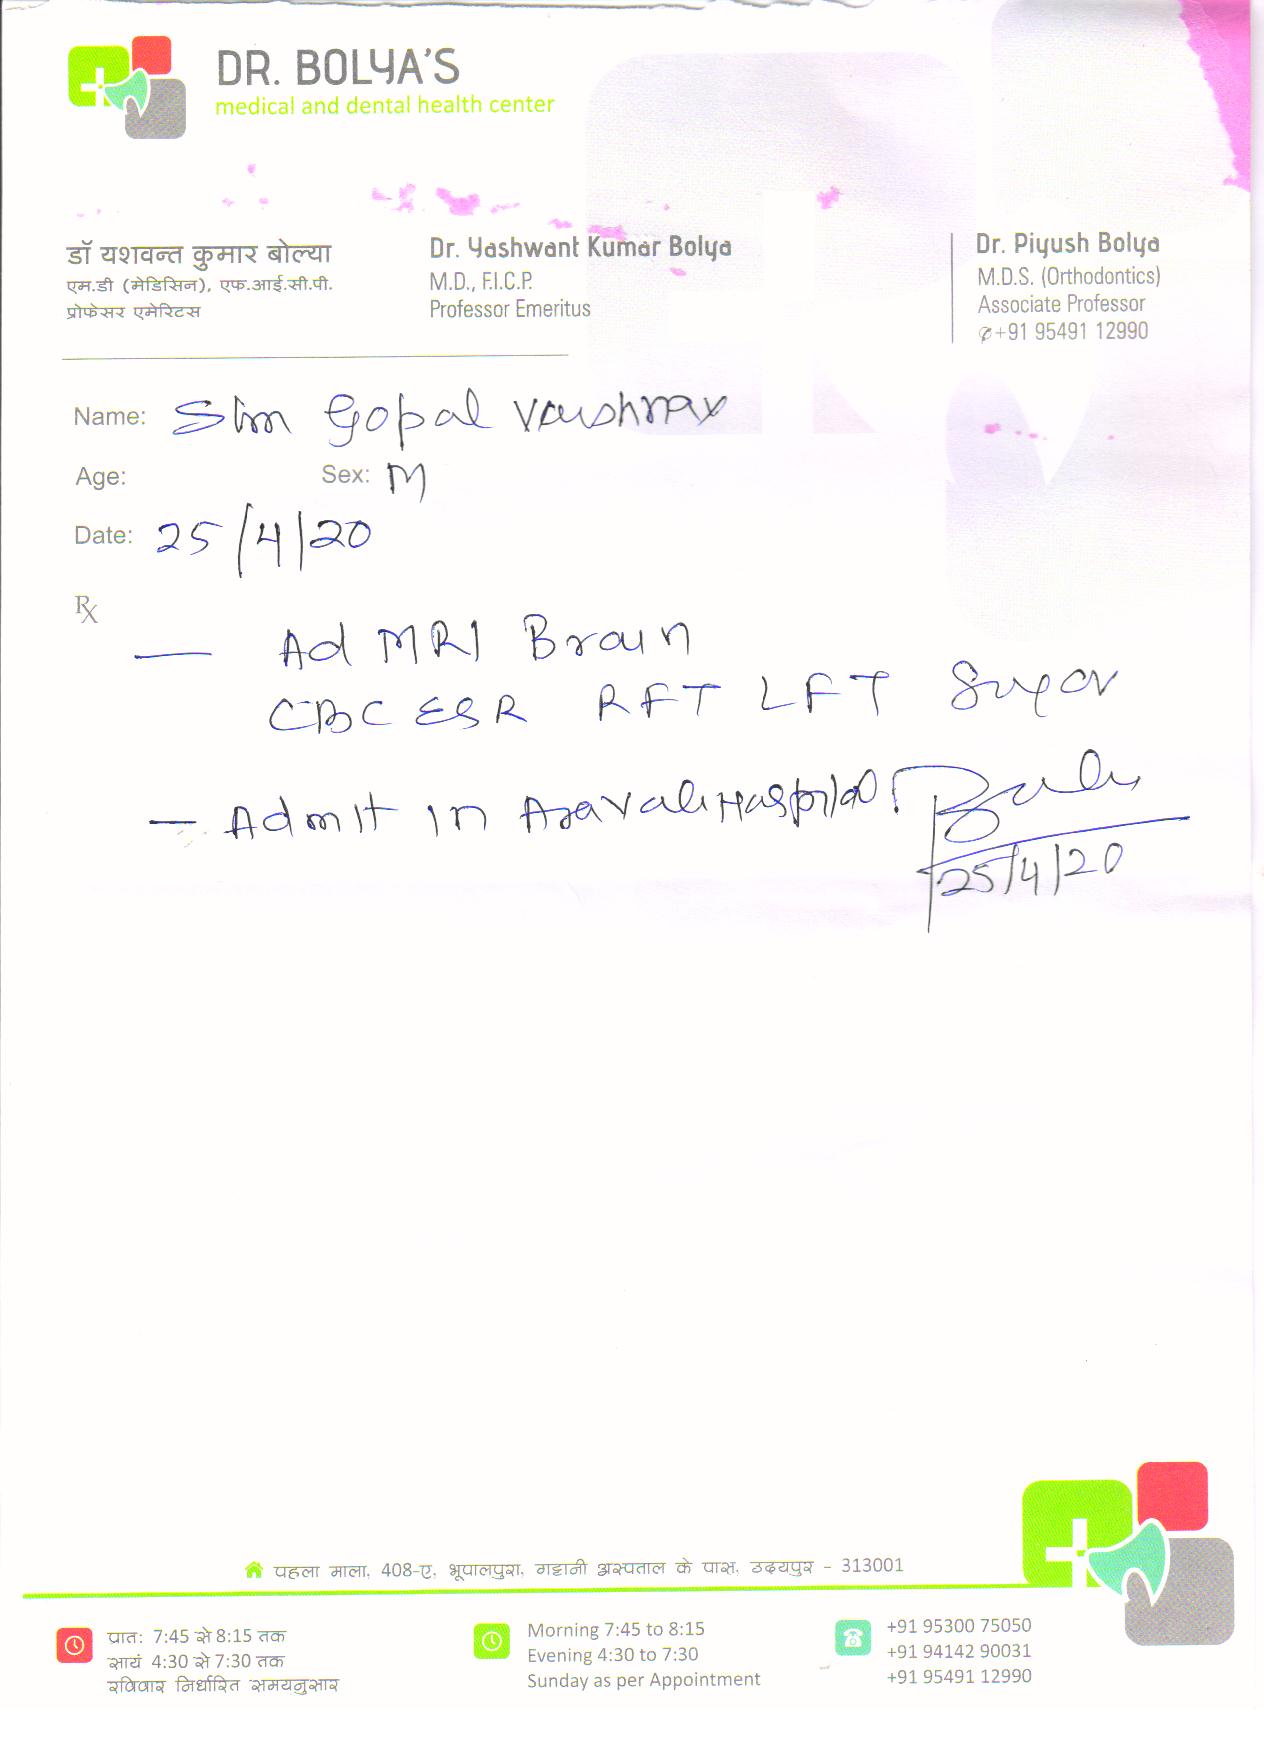 DR. BOLYA'S
medical and dental health center
डॉ यशवन्त कुमार बोल्या
एम.डी (मेडिसिन), एफ.आई.सी.पी.
प्रोफेसर एमेरिटस
Dr. Yashwant Kumar Bolya
M.D., F.I.C.P.
Professor Emeritus
Dr. Piyush Bolya
M.D.S. (Orthodontics)
Associate Professor
+91 95491 12990
Name: Gopal Vaishnav
Age: Sex: M
Date: 25/4/20
Rx
— Ad MRI Brain
CBC ESR RFT LFT Sugar
— Admit in Aravali Hospital
25/4/20
पहला माला, 408-ए, भूपालपुरा, गट्टानी अस्पताल के पास, उदयपुर - 313001
प्रातः 7:45 से 8:15 तक
सायं 4:30 से 7:30 तक
रविवार निर्धारित समयनुसार
Morning 7:45 to 8:15
Evening 4:30 to 7:30
Sunday as per Appointment
+91 95300 75050
+91 94142 90031
+91 95491 12990